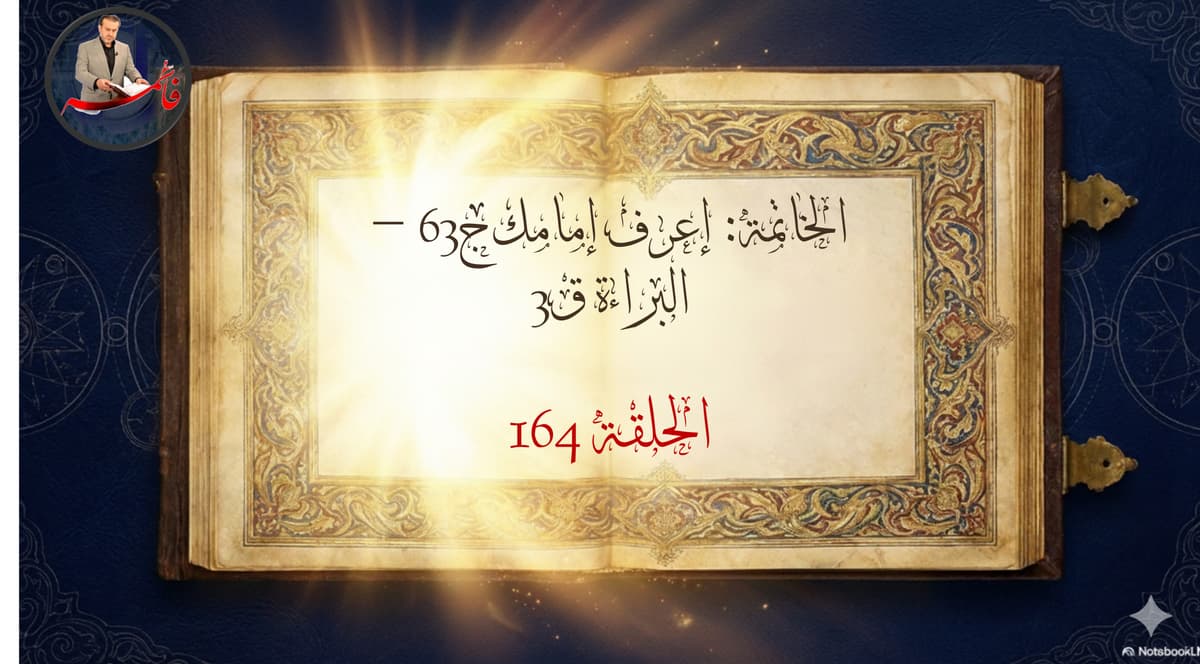 فاطمة
الخاتمة: إعرف إمامك ج63 –
البراءة ق3
الحلقة 164
NotsbookLM